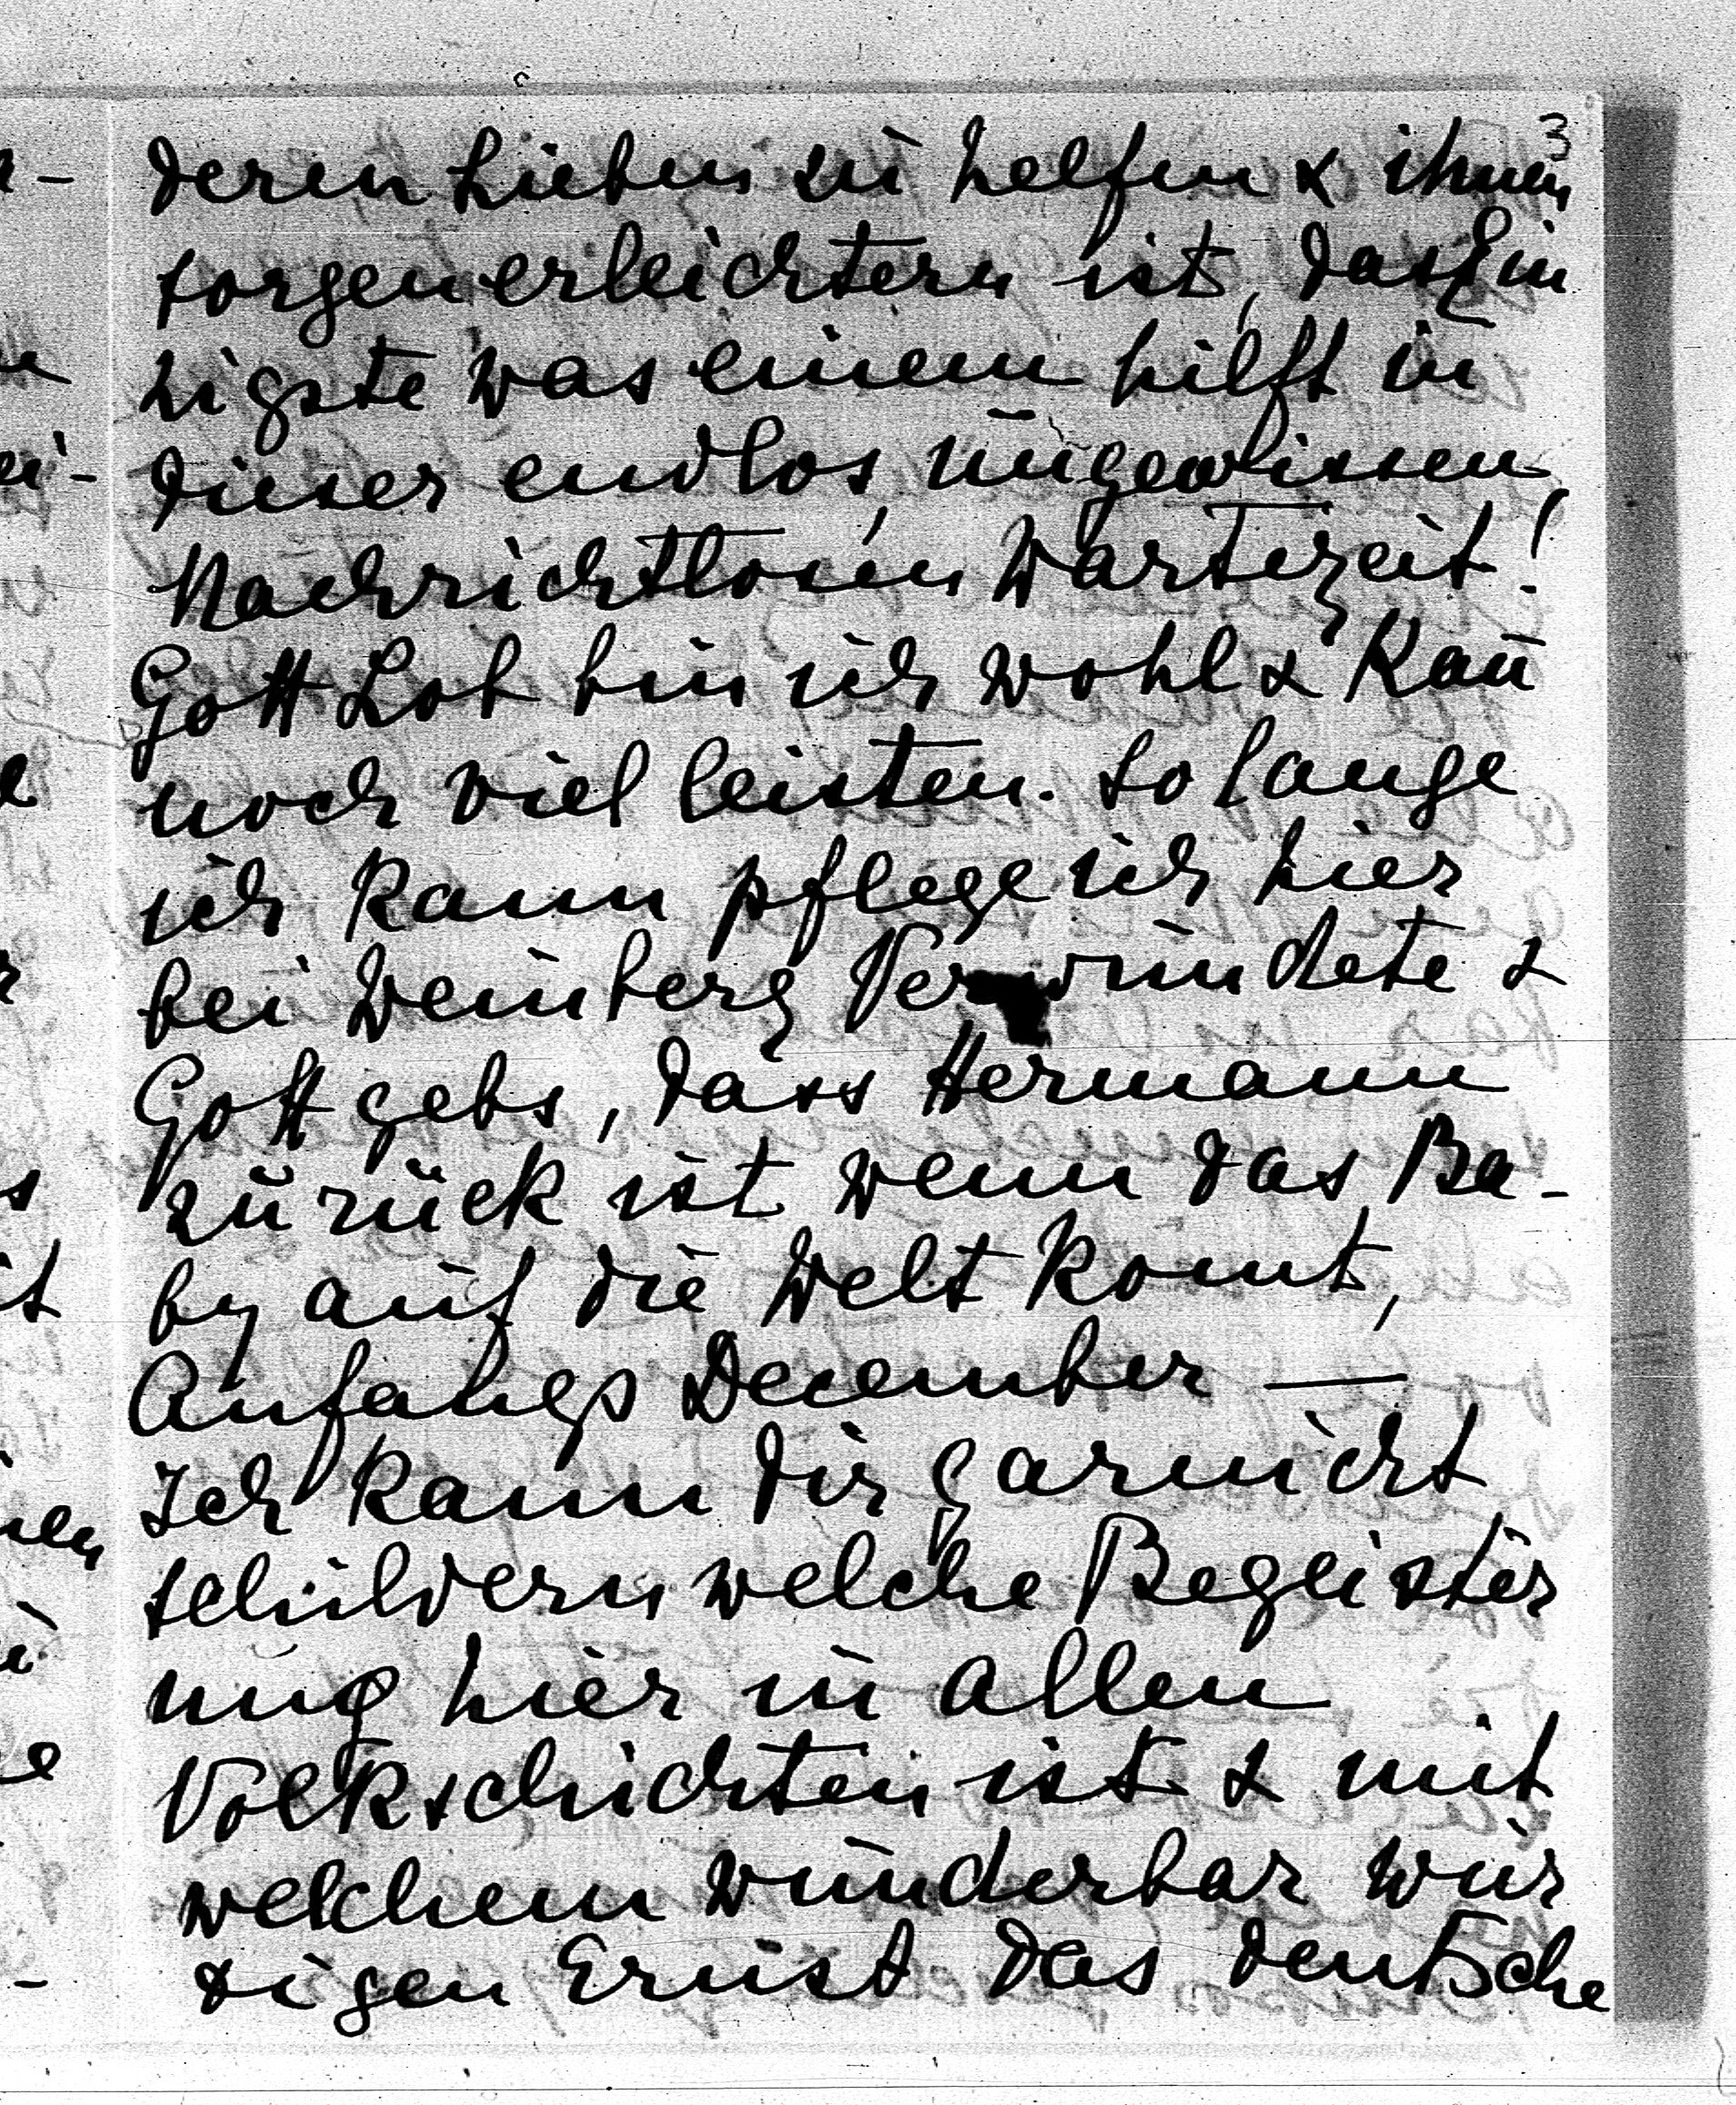 3
deren Lieben zu helfen & ihnen
sorgen erleichtern ist, das Ein
zigste was einem hilft in
dieser endlos, ungewissen
Nachrichtlosen Wartezeit!
Gott Lob bin ich wohl & kañ
noch viel leisten. So lange
ich kann pflege ich hier
bei Weinberg Verwundete &
Gott gebs, dass Hermann
zurück ist wenn das Ba-
by auf die Welt komt,
Anfangs December —
Ich kann dir garnicht
schildern welche Begeister
ung hier in allen
Volkschichten ist & mit
welchem wunderbar wür
digen Ernst das deutsche